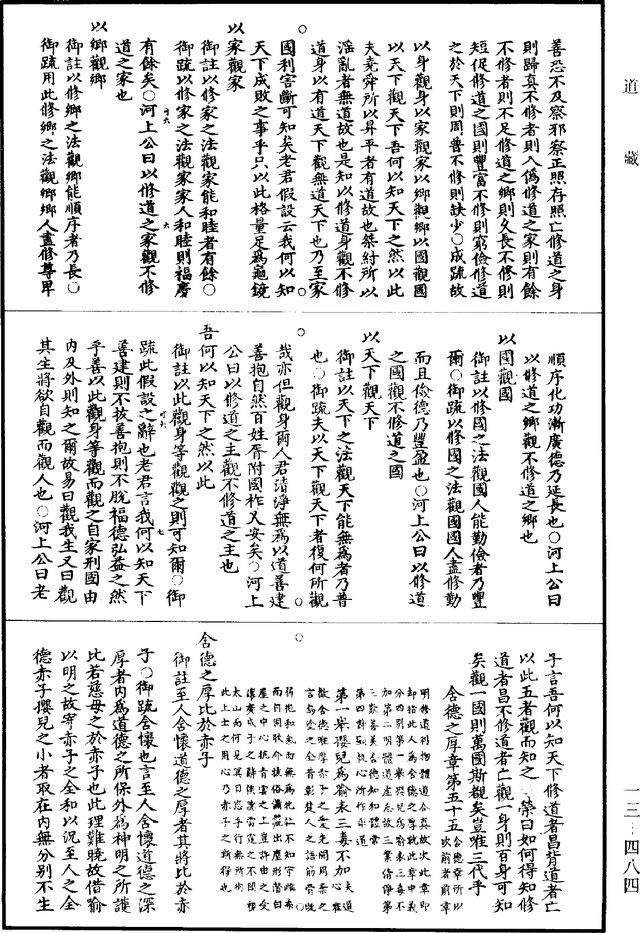 道藏
善恐不及察邪察正照存照亡修道之身
則歸真不修者則入僞修道之家則有餘
不修者則不足修道之鄉則久長不修則
短促修道之國則豐富不修則窮儉修道
之於天下則周普不修則缺少○成疏故
以身觀身以家觀家以鄉觀鄉以國觀國
以天下觀天下吾何以知天下之然以此
夫堯舜所以昇平者有道故也桀紂所以
淫亂者無道故也是知以修道身觀不修
道身以有道天下觀無道天下也乃至家
國利害斷可知矣老君假設云我何以知
天下成敗之事乎只以此格量足為龜鏡
以家觀家
御註以修家之法觀家能和睦者有餘○
御疏以修家之法觀家家人和睦則福慶
有餘矣○河上公曰以修道之家觀不修
道之家也
以鄉觀鄉
御註以修鄉之法觀鄉能順序者乃長○
御疏用此修鄉之法觀鄉鄉人盡修尊卑
順序化功漸廣德乃延長也○河上公曰
以修道之鄉觀不修道之鄉也
以國觀國
御註以修國之法觀國人能勤儉者乃豐
爾○御疏以修國之法觀國國人盡修勤
而且儉德乃豐盈也○河上公曰以修道
之國觀不修道之國
以天下觀天下
御註以天下之法觀天下能無為者乃普
也○御疏夫以天下觀天下者復何所觀
哉亦但觀身爾人君清淨無為以道善建
善抱自然百姓胥附國祚乂安矣○河上
公曰以修道之主觀不修道之主也
吾何以知天下之然以此
御註以此觀身等觀觀之則可知爾○御
疏此假設之辭也老君言我何以知天下
善建則不拔善抱則不脫福德弘益之然
乎善以此觀身等觀而觀之自家刑國由
內及外則知之爾故易曰觀我生又曰觀
其生將欲自觀而觀人也○河上公曰老
子言吾何以知天下修道者昌背道者亡
以此五者觀而知之○榮曰如何得知修
道者昌不修道者亡觀一身則百身可知
矣觀一國則萬國斯覩矣豈唯三代乎
含德之厚章第五十五含德章所以次前者前章
明修道利物體道合真故次此章即
却指此人為含德之厚就此章中義
分四別第一舉嬰兒為喻表三毒不
加第二明體道虛忘故三業清淨第
三歎善美合德知和體常
第四對顯執心所作乖道
第一舉嬰兒為喻表三毒不加
含德之厚比於赤子
御註至人含懷道德之厚者其將比於赤
子○御疏含懷也言至人含懷道德之深
厚者內為道德之所保外為神明之所護
比若慈母之於赤子也此理難曉故借喻
以明之故寄赤子之全和以況至人之全
德赤子嬰兒之小者取在內無分別不生
一三─四八四